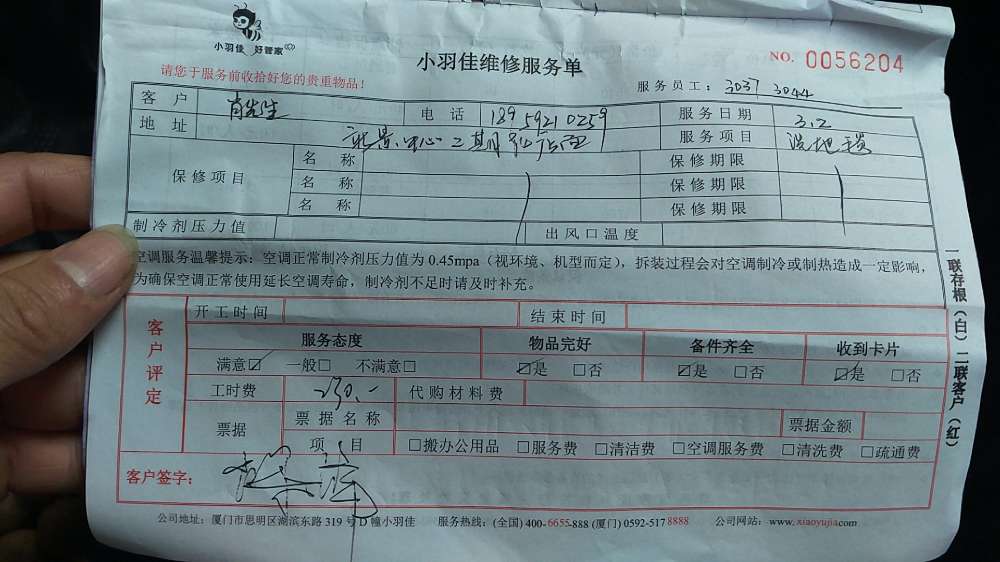 小羽佳 好管家
小羽佳维修服务单
NO. 0056204
请您于服务前收拾好您的贵重物品！
服务员工：3037 3044
客户 肖先生 电话 18959210259 服务日期 3.2
地址 中心二期 服务项目
保修项目 名称 保修期限
名称 保修期限
名称 保修期限
制冷剂压力值 出风口温度
空调服务温馨提示：空调正常制冷剂压力值为 0.45mpa（视环境、机型而定），拆装过程会对空调制冷或制热造成一定影响，
为确保空调正常使用延长空调寿命，制冷剂不足时请及时补充。
一联存根（白）二联客户（红）
客户评定
开工时间 结束时间
服务态度 物品完好 备件齐全 收到卡片
满意☑ 一般□ 不满意□ ☑是 □否 ☑是 □否 ☑是 □否
工时费 230.- 代购材料费
票据 票据名称 票据金额
项目 □搬办公用品 □服务费 □清洁费 □空调服务费 □清洗费 □疏通费
客户签字：
公司地址：厦门市思明区湖滨东路 319 号 D 幢小羽佳 服务热线：(全国) 400-6655-888 (厦门) 0592-517 8888 公司网站：www.xiaoyujia.com